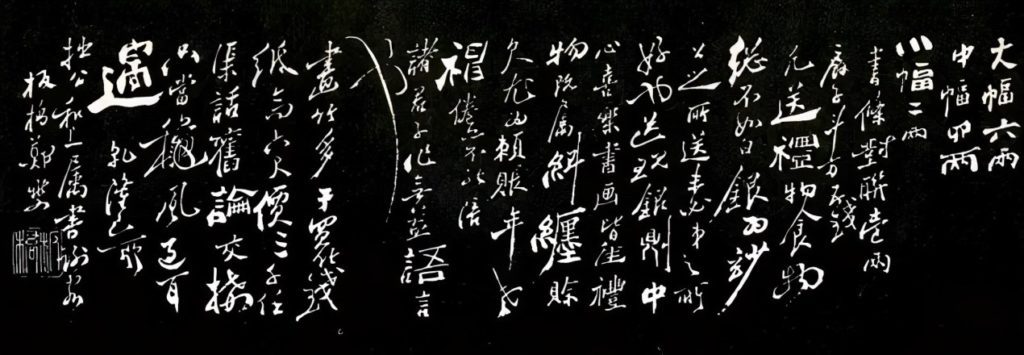 大幅六兩
中幅四兩
小幅二兩
書條對聯壹兩
扇子斗方五錢
凡送禮物食物
総不如白銀为妙
公之所送未必弟之所
好也送現銀則中
心喜樂書画皆佳禮
物既属糾纏賒
欠尤为賴賬年老
神倦亦不能陪
諸君子作無益語言
也
畫竹多于買竹錢
紙高六尺價三千任
渠話舊論交接
只當秋風過耳
邊乾隆己卯
拙公和上属書謝客
板橋鄭燮